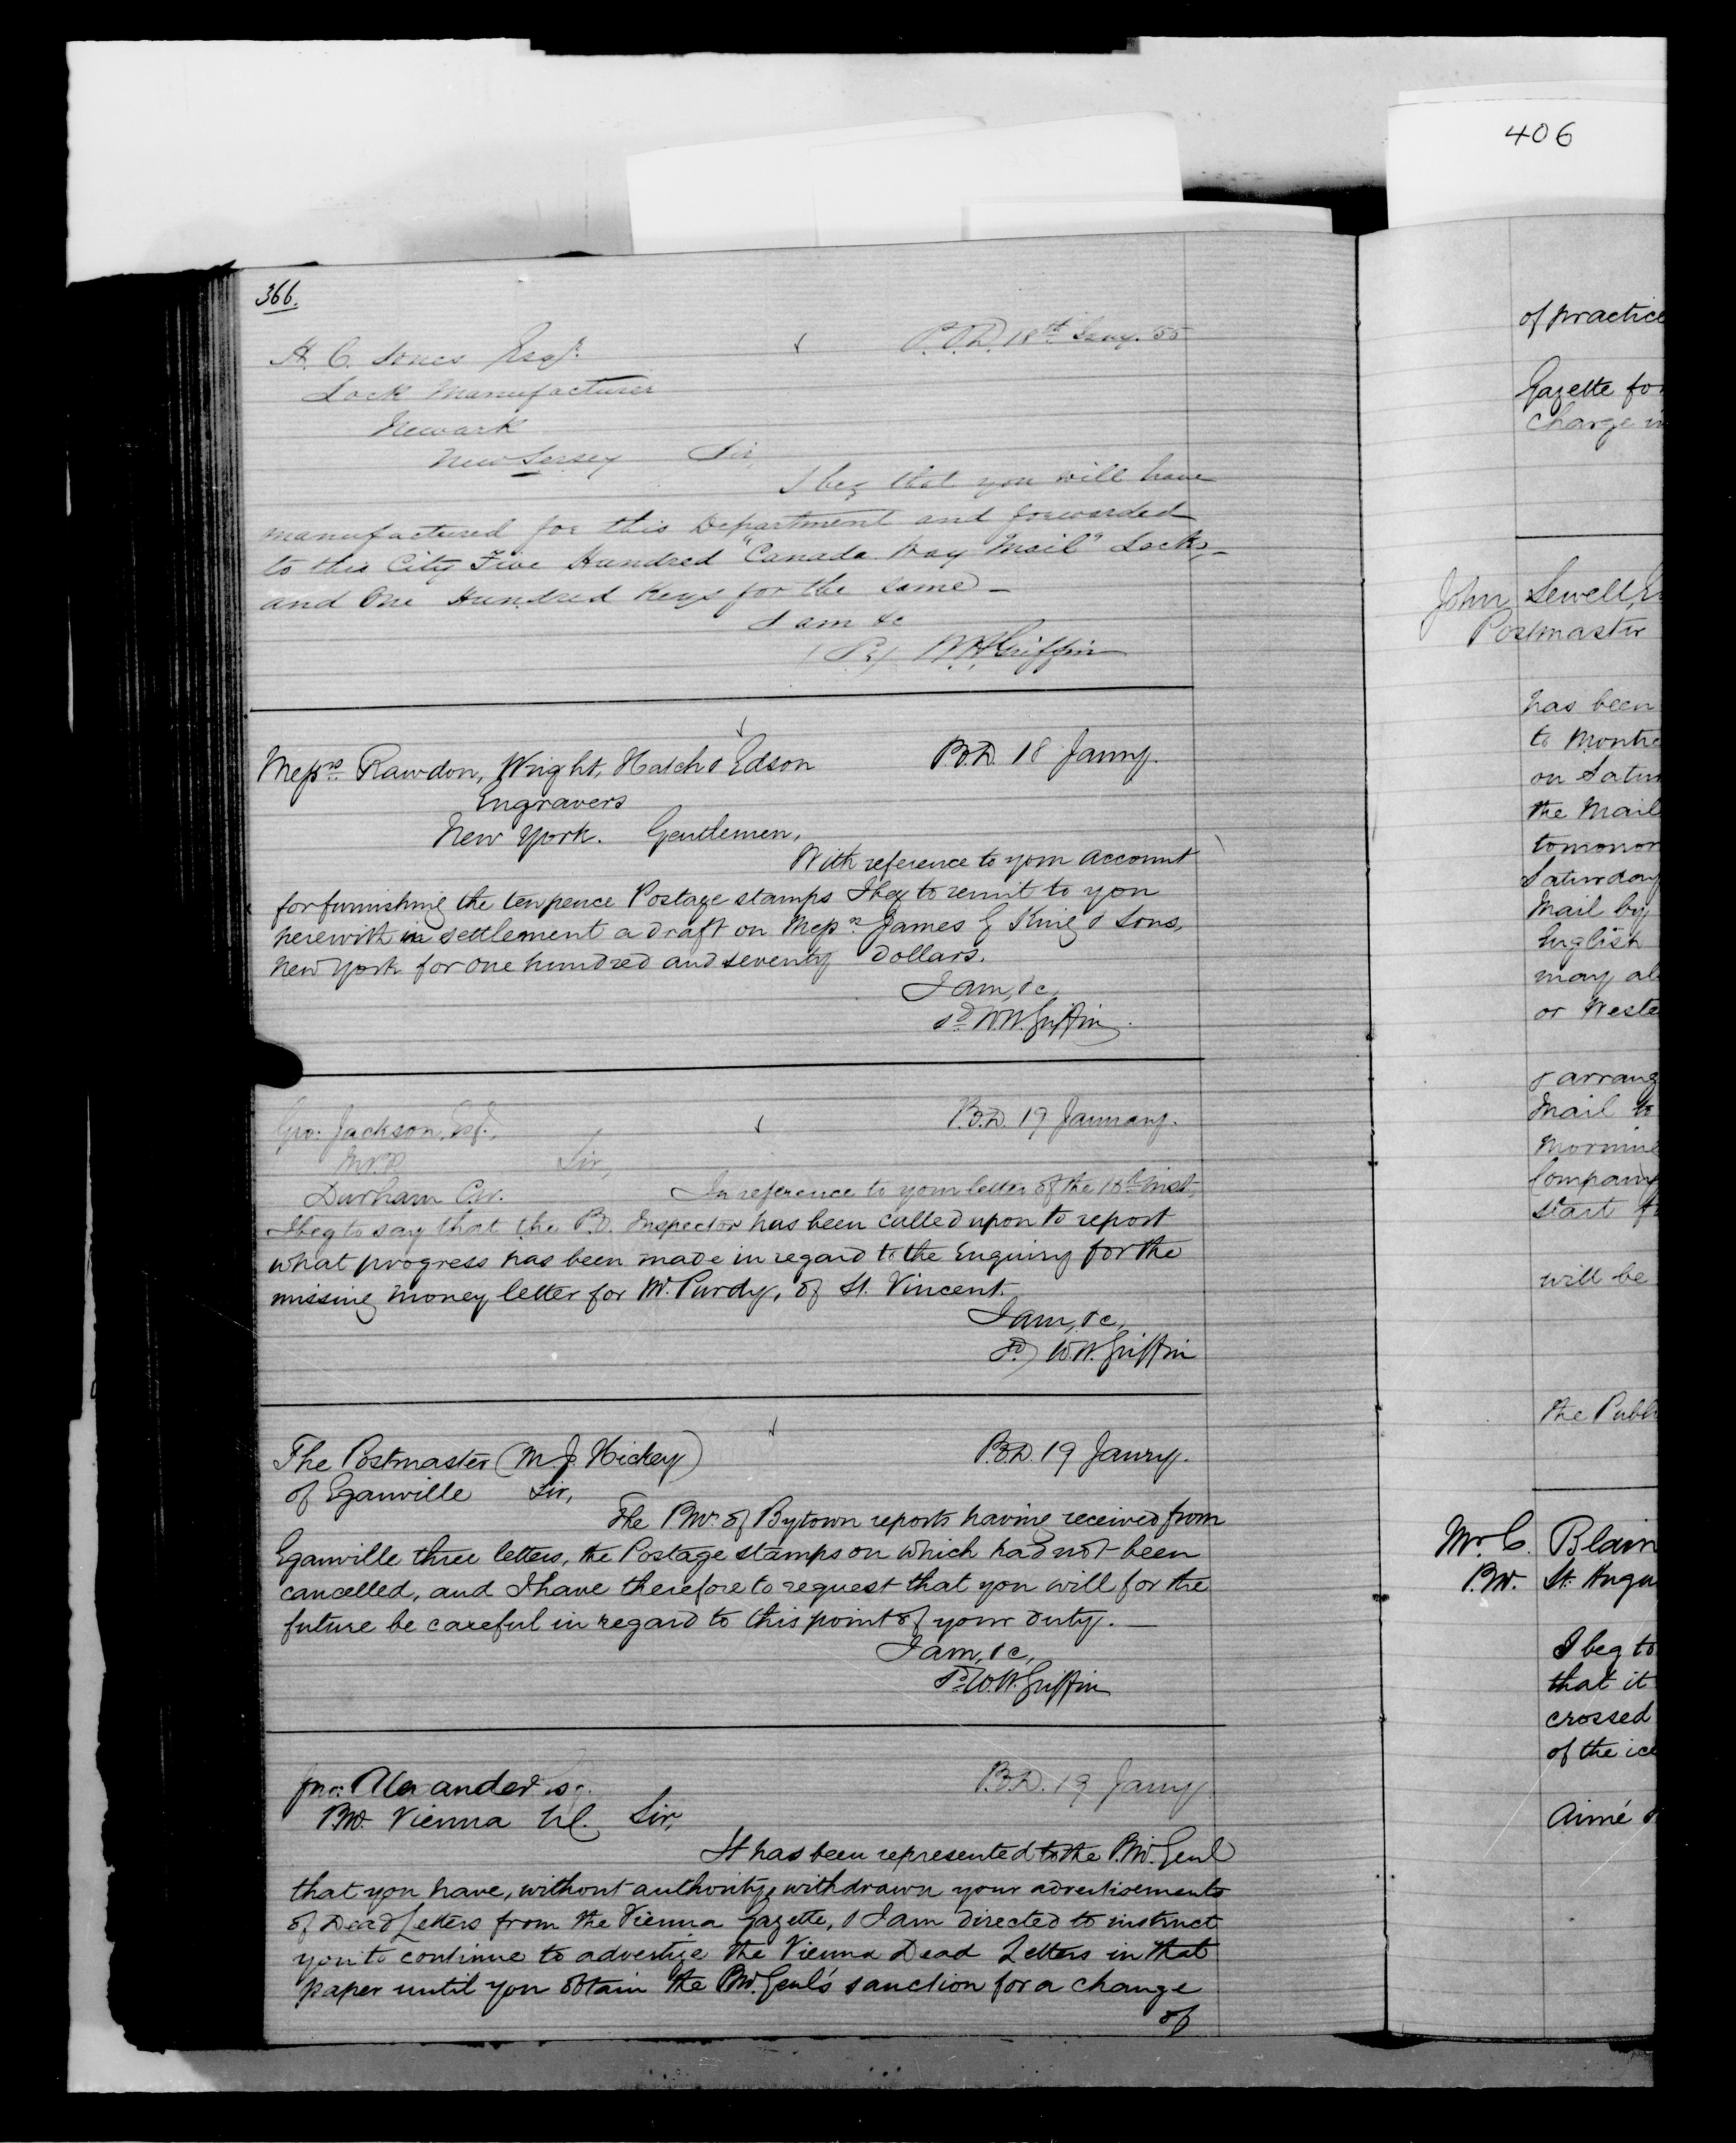 406
366.
H. C. Jones Esqr.
P.O.D. 18th Jany. 55
Lock Manufacturer
Newark
New Jersey Sir,
I beg that you will have
manufactured for this Department and forwarded
to this City Five Hundred "Canada Way Mail" Locks,
and One Hundred Keys for the same —
I am &c
W.H. Griffin
Messrs. Rawdon, Wright, Hatch & Edson
P.O.D. 18 Janry.
Engravers
New York. Gentlemen,
With reference to your account
for furnishing the tenpence Postage stamps I beg to remit to you
herewith in settlement a draft on Messrs James G King & Sons,
New York for one hundred and seventy Dollars.
I am, &c,
sd. W.H. Griffin.
Geo: Jackson, Esq.,
P.O.D. 19 January.
M.P.P. Sir,
Durham C.W. In reference to your letter of the 10th inst,
I beg to say that the P.O. Inspector has been called upon to report
what progress has been made in regard to the Enquiry for the
missing money letter for Mr. Purdy, of St. Vincent.
I am, &c,
sd) W.H. Griffin
The Postmaster (M. J. Hickey)
P.O.D. 19 Janry.
of Eganville Sir,
The P.Mr. of Bytown reports having received from
Eganville three letters, the Postage stamps on which had not been
cancelled, and I have therefore to request that you will for the
future be careful in regard to this point of your duty. —
I am, &c,
sd W.H. Griffin
Jno. Alexander Esq.
P.O.D. 19 Janry.
P.M. Vienna Sir,
It has been represented to the P.M. Genl
that you have, without authority, withdrawn your advertisements
of Dead Letters from the Vienna Gazette, & I am directed to instruct
you to continue to advertize the Vienna Dead Letters in that
paper until you obtain the P.M. Genl's sanction for a change
of
of practice
Gazette for
charge in
John Sewell, E
Postmaster
has been
to Montre
on Satur
the Mail
tomorrow
Saturday
Mail by
English
may al
or Weste
& arrang
Mail to
Morning
Company
start f
will be
the Publ
Mr. C. Blain
P.M. St. Hugu
I beg to
that it
crossed
of the ice
Aimé